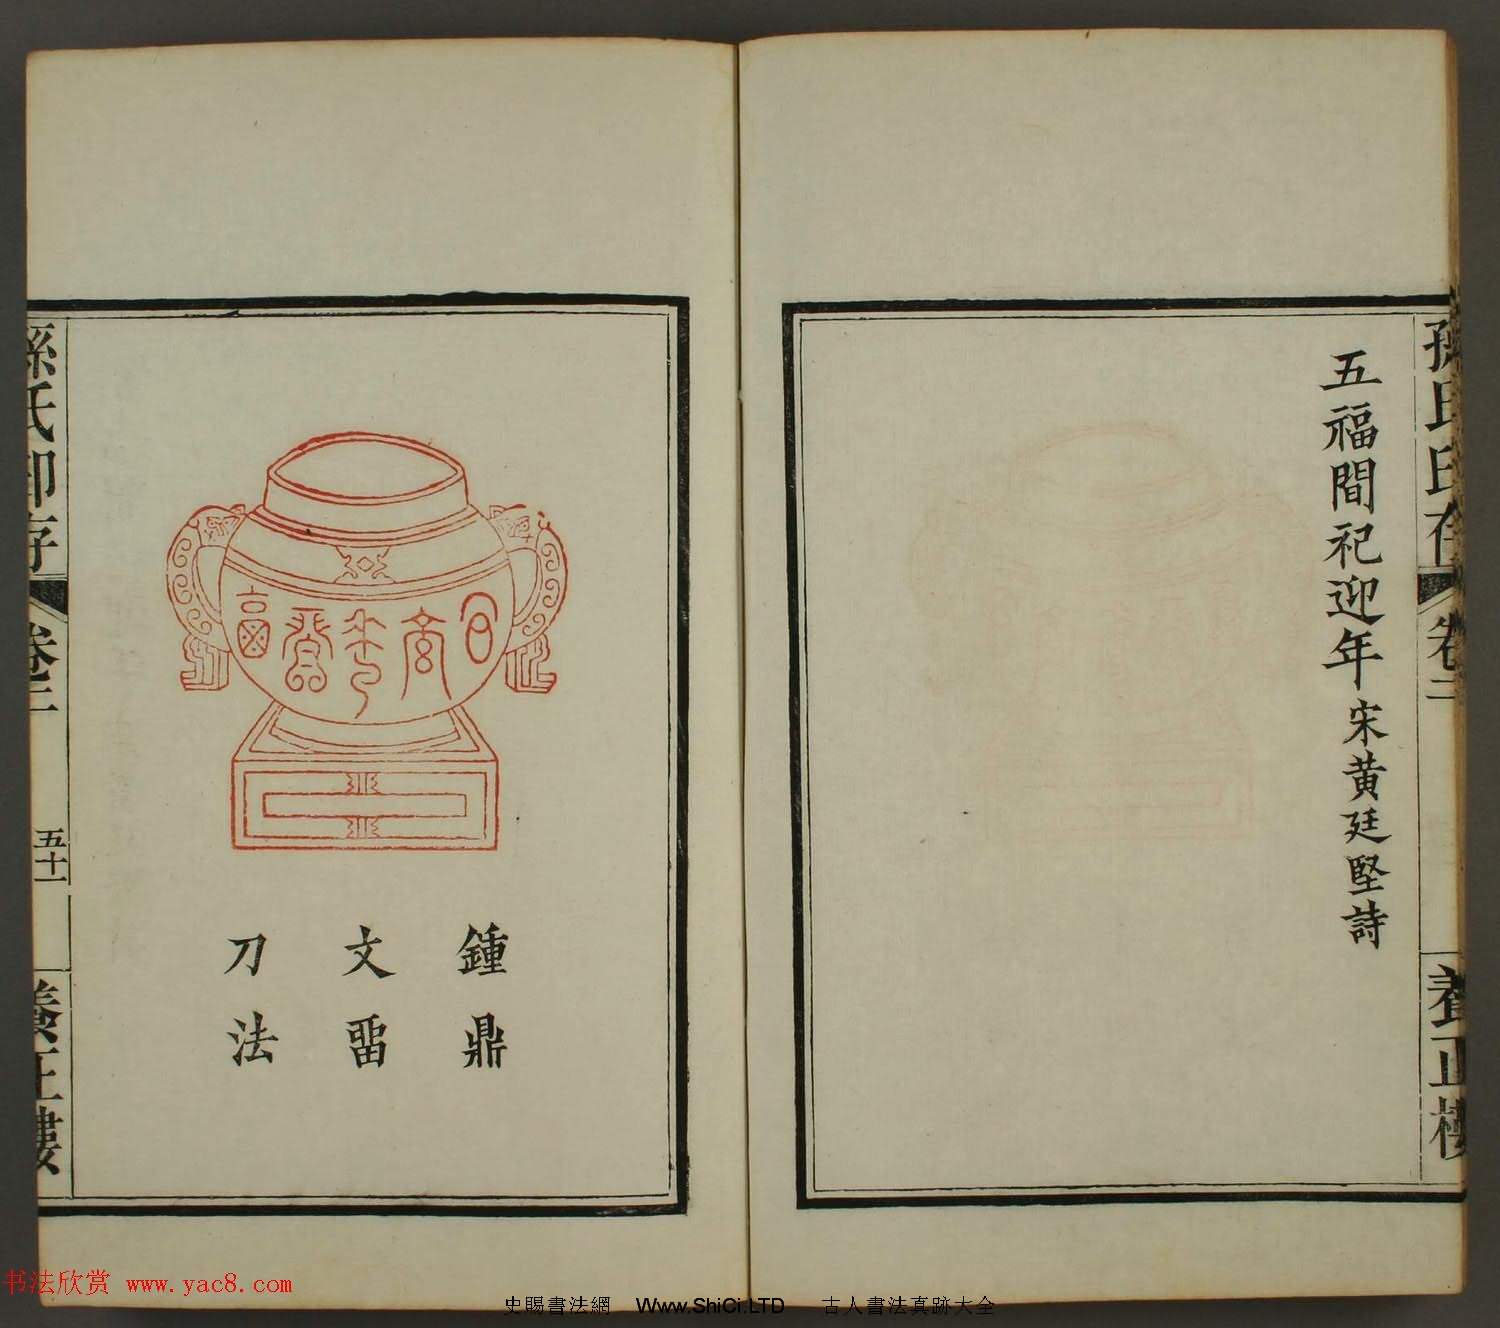 孫氏印存
卷二
養正樓
五福間祀迎年宋黄廷堅詩
鍾鼎
文畱
刀法
孫氏印存
卷二
五十一
養正樓
书法欣赏 www.yac8.com
史賜書法網 Www.ShiCi.LTD 古人書法真跡大全